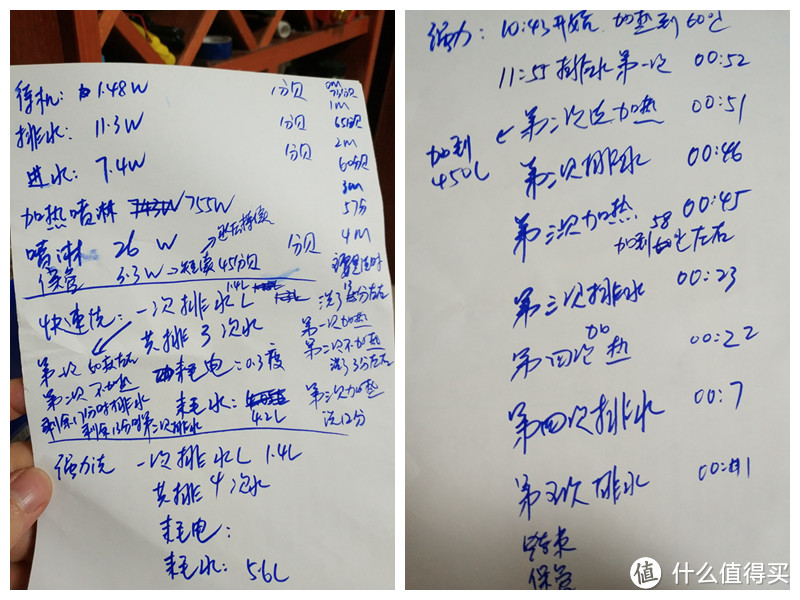 待机: 1.48W
1分贝
0m
73分贝
1m
排水: 11.3W
分贝
65分贝
2m
进水: 7.4W
分贝
60分贝
3m
加热喷淋 743W 755W
57分
喷淋 26 W
分贝
4m
保管 3.3W → 45分贝
快速洗: 一次排水L 1.4L
共排3次水
第一次加热
第二次不加热
洗了3分左右
第三次加热
洗12分
第一次
第二次 不加热
剩余17分时排水
剩余13分时第二次排水
耗电: 0.3度
耗水:
4.2L
强力洗 一次排水L 1.4L
共排4次水
耗电:
耗水: 5.6L
强力: 10:43开始 加热到60度
11:55排水第一次 00:52
第二次 加热 00:51
加到
450L
第二次排水 00:46
第三次加热 00:45
58
加到 左右
第三次排水 00:23
第四次加热 00:22
第四次排水 00:7
第五次排水
结束
保管
值 什么值得买